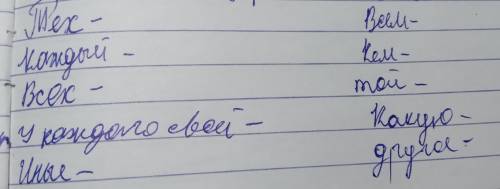 Тех -
Каждый -
Всех -
У каждого свой -
Иные -
Всем -
Кем -
той -
Какую -
другое -